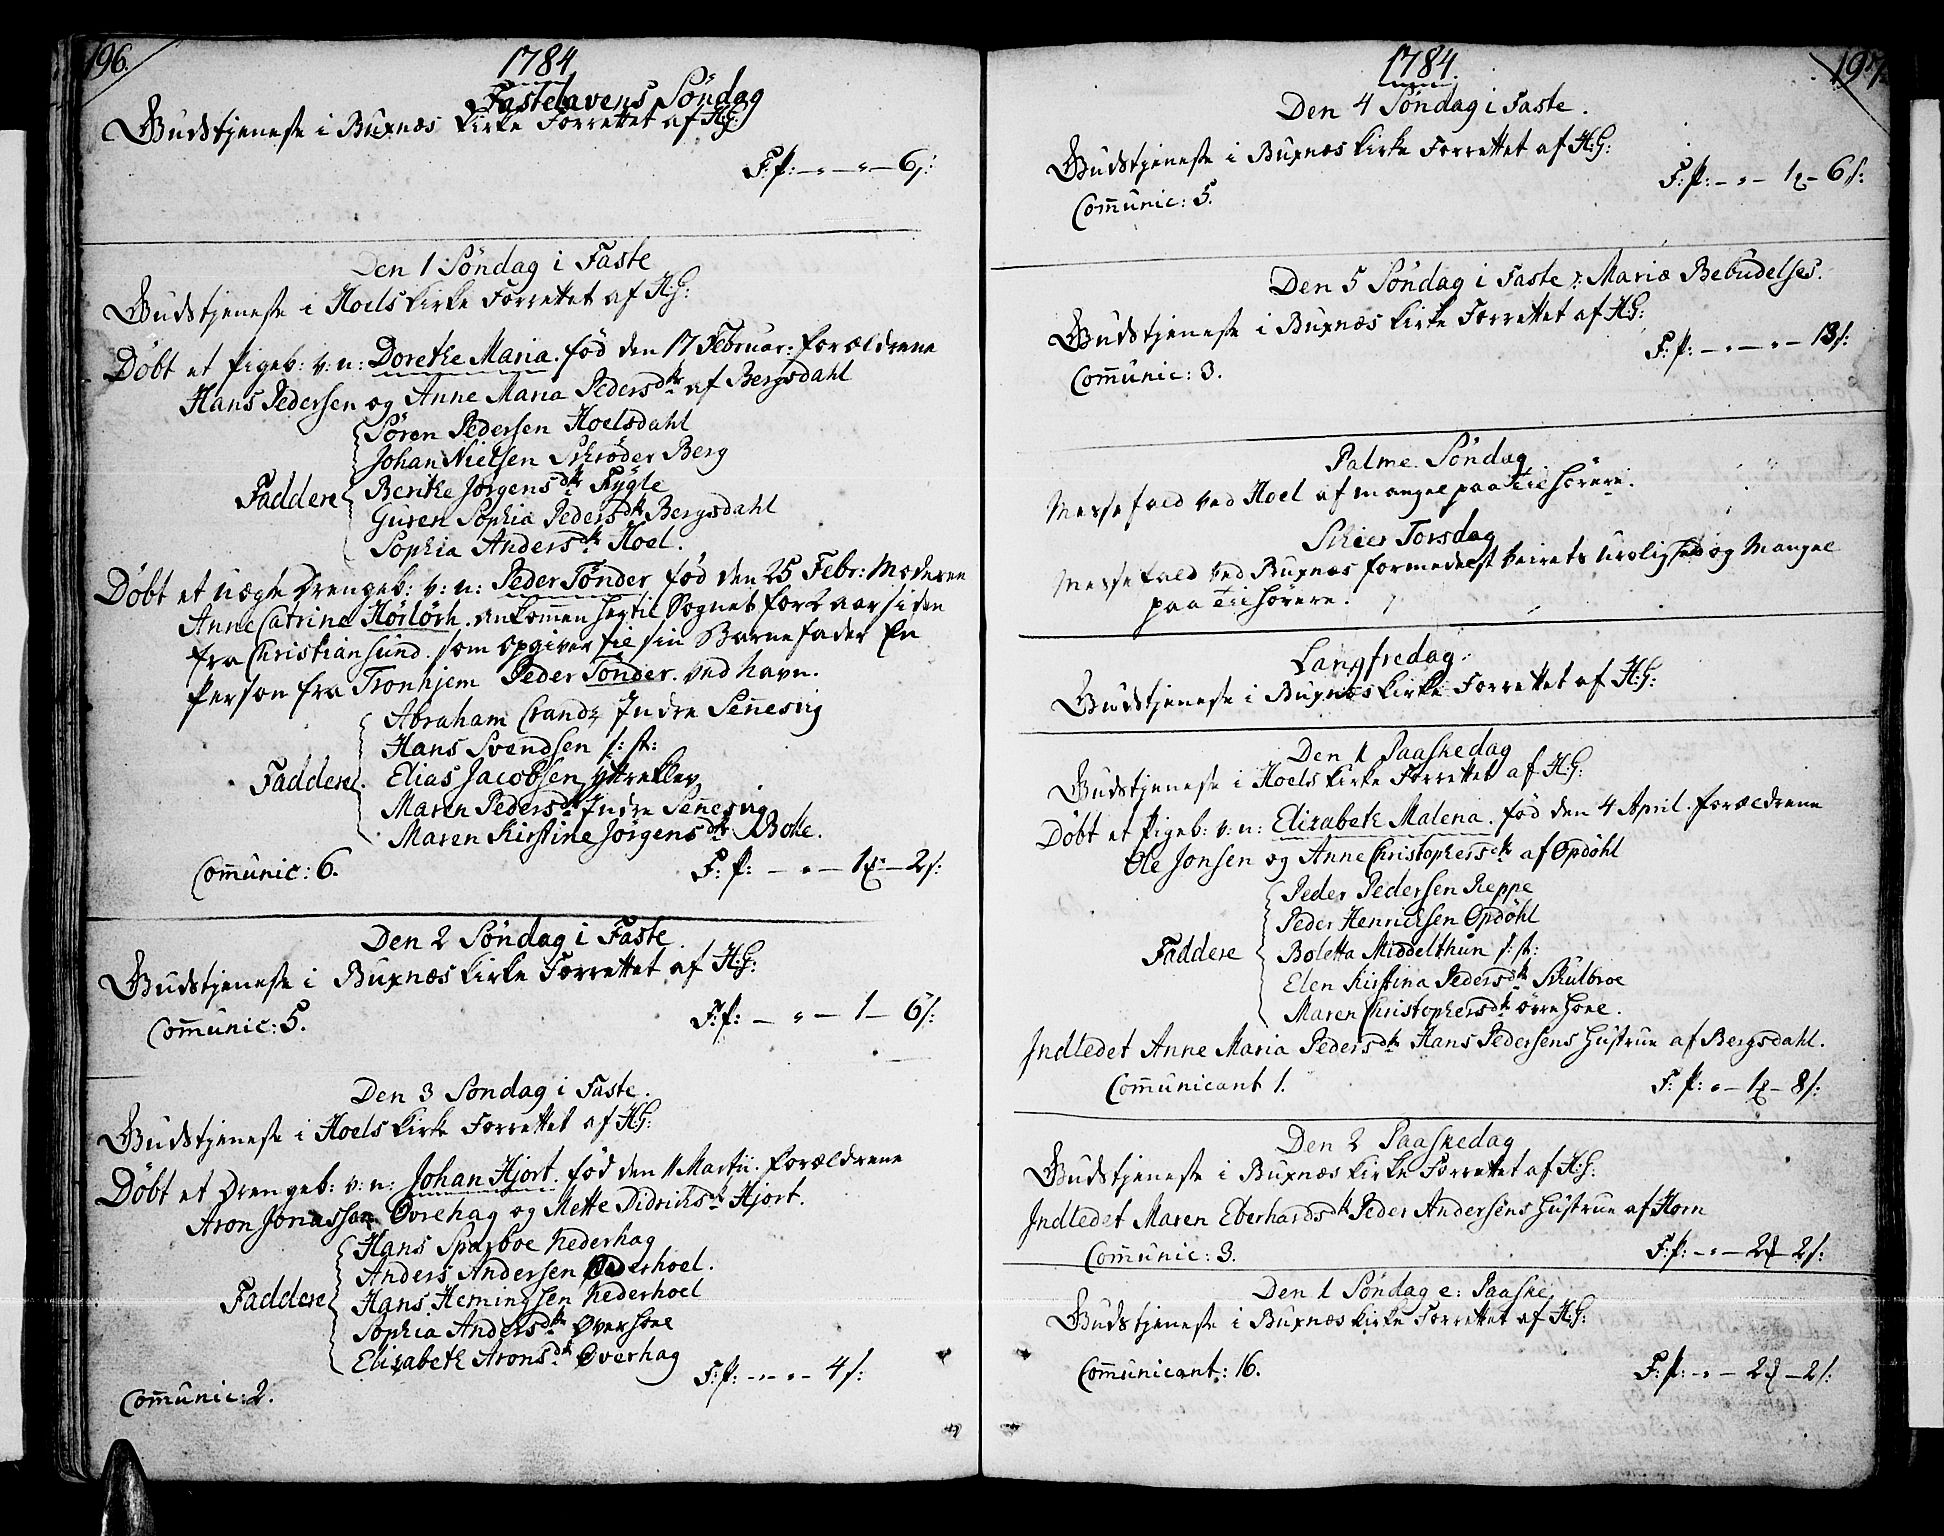 196.
1784
Fastelavens Søndag
Gudstjeneste i Buxnæs Kirke Forrettet af H:G:
F: P: – „ – „ – 6 s:
Den 1 Søndag i Faste
Gudstjeneste i Hoels Kirke Forrettet af H:G:
Døbt et Pigeb: v: n: Dorethe Maria. fød den 17 Februar: Forældrene
Hans Pedersen og Anne Maria Pedersdtr af Bergsdahl
Søren Pedersen Hoelsdahl
Johan Nielsen Schrøder Berg
Faddere Berithe Jørgensdtr Fygle
Guren Sophia Pedersdtr Bergsdahl
Sophia Andersdtr Hoel.
Døbt et uægte Drengeb: v: n: Peder Tønder fød den 25 Febr: Moderen
Anne Catrina Hørlørh. ankommen hertil Sognet for 2 aar siden
fra Christiansund. som opgiver til sin Barnefader En
Person fra Tronhjem Peder Tønder. ved havn.
Abraham Crandz Indre Sennesvig
Hans Svendsen s: st:
Faddere. Elias Jacobsen Yttreklev
Maren Pedersdtr Indre Sennesvig
Maren Kirstine Jørgensdtr Bolle.
Comunic: 6. F: P: – „ – 1 – 2 s:
Den 2 Søndag i Faste
Gudstjeneste i Buxnæs Kirke Forrettet af H:G:
Comunic: 5. F: P: – „ – 1 – 6 s:
Den 3 Søndag i Faste.
Gudstjeneste i Hoels Kirke Forrettet af H:G:
Døbt et Drengeb: v: n: Johan Hjort. fød den 11 Martii. Forældrene
Aron Jonassen Øvrehag og Mette Didrichsdtr Hjort.
Hans Sparboe Nederhag
Anders Andersen Nederhoel.
Faddere Hans Hemingsen Nederhoel
Sophia Andersdtr Øverhoel
Elizabeth Aronsdtr Øverhag
F: P: – „ – „ – 4 s:
Comunic: 2.
197.
1784.
Den 4 Søndag i Faste.
Gudstjeneste i Buxnæs Kirke Forrettet af H:G:
Comunic: 5. F: P: – „ – 1 – 6 s:
Den 5 Søndag i Faste : Mariæ Bebudelses.
Gudstjeneste i Buxnæs Kirke Forrettet af H:G:
Comunic: 3. F: P: – „ – „ – 13 s:
Palme Søndag
Messefald ved Hoel af mangel paa Tilhørere.
Schier Torsdag
Messefald ved Buxnæs formedelst Veirets Urolighed og Mangel
paa Tilhørere.
Langfredag.
Gudstjeneste i Buxnæs Kirke Forrettet af H:G:
Den 1 Paaskedag
Gudstjeneste i Hoels Kirke Forrettet af H:G:
Døbt et Pigeb: v: n: Elizabeth Malena. fød den 4 April. Forældrene
Ole Jonsen og Anne Christophersdtr af Opdøhl
Peder Pedersen Reppe
Peder Henricksen Opdøhl
Faddere Boletta Middelthun s: st:
Elen Kistina Pedersdtr Skulbroe
Maren Christophersdtr Øvrehoel.
Indledet Anne Maria Pedersdtr Hans Pedersens Hustrue af Bergsdahl.
Comunicant 1. F: P: „ – 1 – 8 s:
Den 2 Paaskedag
Gudstjeneste i Buxnæs Kirke Forrettet af H:G:
Indledet Maren Eberhardsdtr Peder Andersens Hustrue af Horn
Comunic: 3. F: P: – „ – 2 – 2 s:
Den 1 Søndag e: Paaske
Gudstjeneste i Buxnæs Kirke Forrettet af H:G:
Comunicant: 16. F: P: – „ – 2 – 2 s: